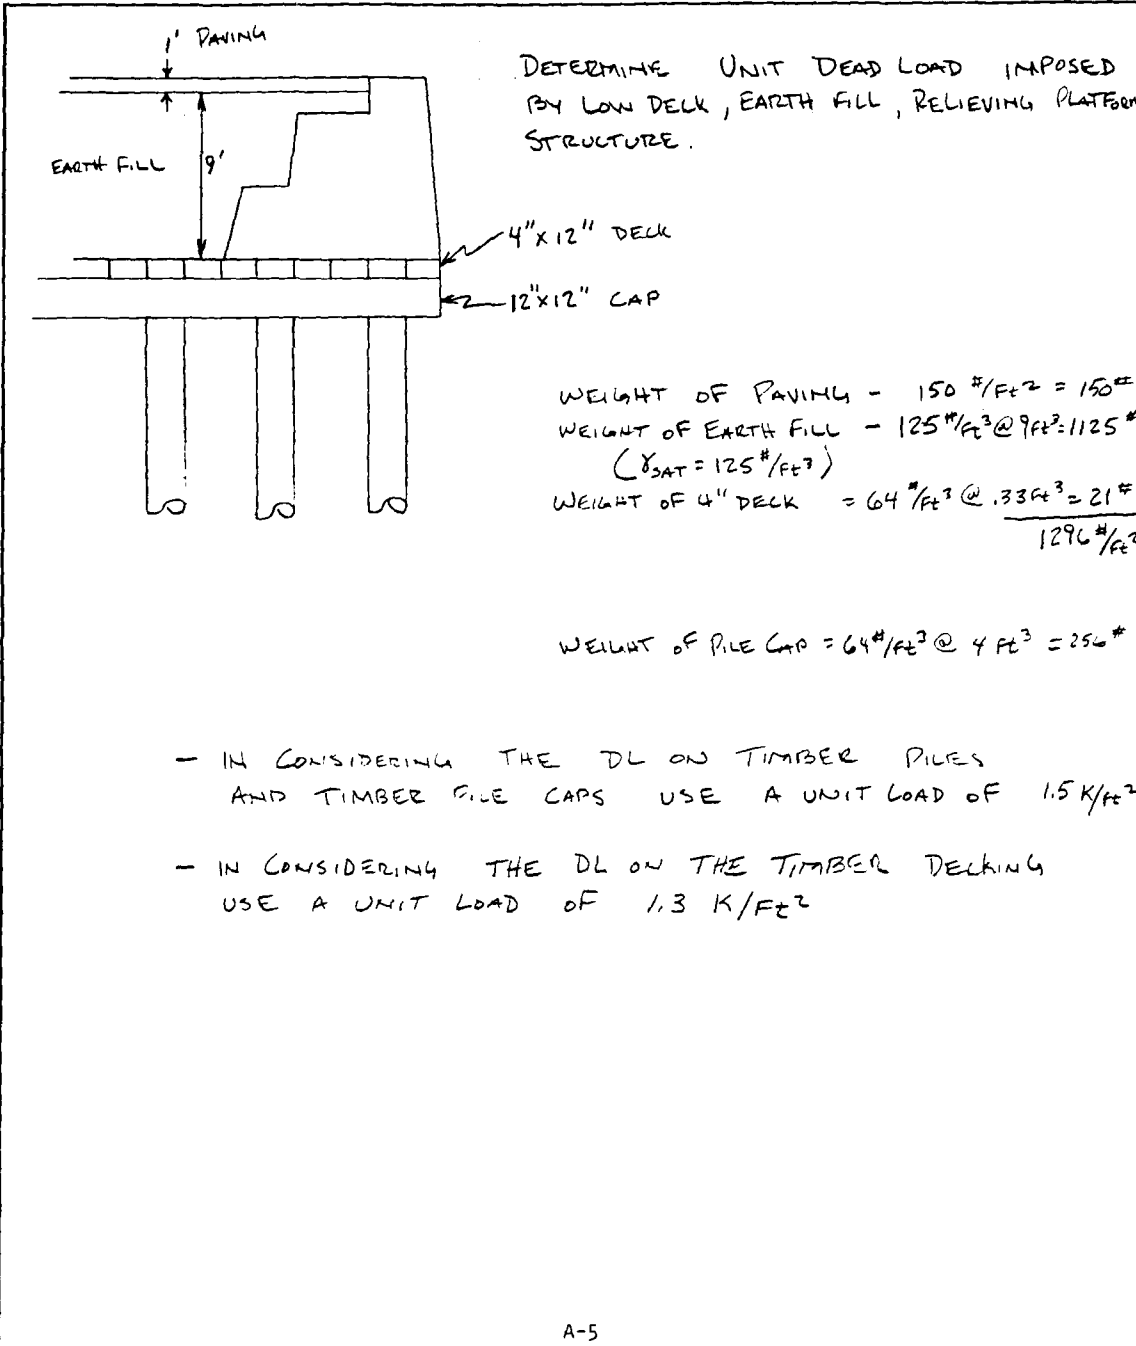 1' PAVING
DETERMINE UNIT DEAD LOAD IMPOSED
BY LOW DECK, EARTH FILL, RELIEVING PLATFORM
STRUCTURE.
EARTH FILL 9'
4"x12" DECK
12"x12" CAP
WEIGHT OF PAVING - 150 #/Ft² = 150#
WEIGHT OF EARTH FILL - 125#/Ft³@9ft³=1125#
(γSAT = 125#/Ft³)
WEIGHT OF 4" DECK = 64 #/Ft³ @ .33Ft³ = 21#
1296#/Ft²
WEIGHT OF PILE CAP = 64#/Ft³ @ 4 Ft³ = 256#
- IN CONSIDERING THE DL ON TIMBER PILES
AND TIMBER PILE CAPS USE A UNIT LOAD OF 1.5 K/Ft²
- IN CONSIDERING THE DL ON THE TIMBER DECKING
USE A UNIT LOAD OF 1.3 K/Ft²
A-5